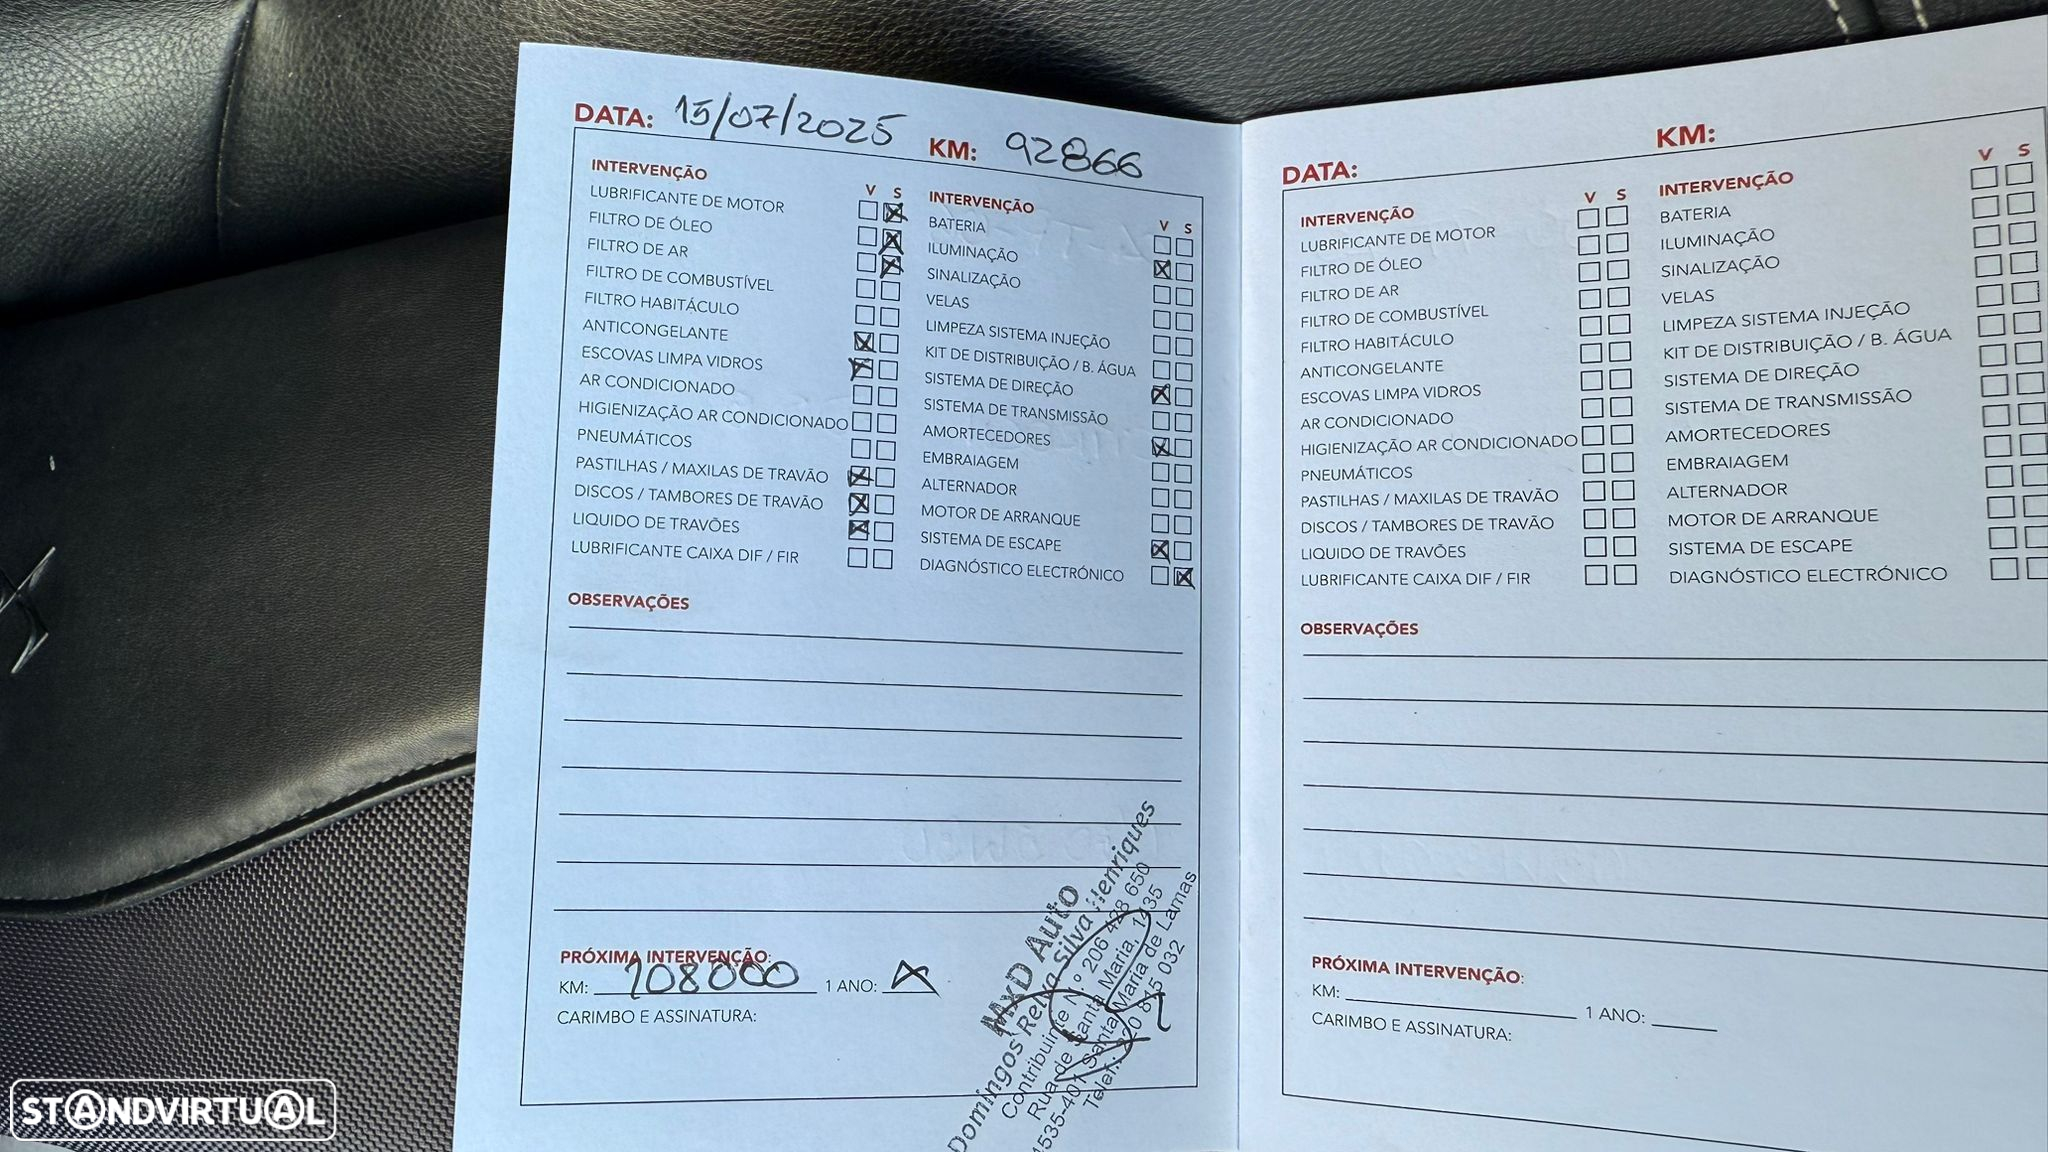 DATA: 15/07/2025 KM: 92866
INTERVENÇÃO V S
LUBRIFICANTE DE MOTOR
FILTRO DE ÓLEO
FILTRO DE AR
FILTRO DE COMBUSTÍVEL
FILTRO HABITÁCULO
ANTICONGELANTE
ESCOVAS LIMPA VIDROS
AR CONDICIONADO
HIGIENIZAÇÃO AR CONDICIONADO
PNEUMÁTICOS
PASTILHAS / MAXILAS DE TRAVÃO
DISCOS / TAMBORES DE TRAVÃO
LIQUIDO DE TRAVÕES
LUBRIFICANTE CAIXA DIF / FIR
INTERVENÇÃO V S
BATERIA
ILUMINAÇÃO
SINALIZAÇÃO
VELAS
LIMPEZA SISTEMA INJEÇÃO
KIT DE DISTRIBUIÇÃO / B. ÁGUA
SISTEMA DE DIREÇÃO
SISTEMA DE TRANSMISSÃO
AMORTECEDORES
EMBRAIAGEM
ALTERNADOR
MOTOR DE ARRANQUE
SISTEMA DE ESCAPE
DIAGNÓSTICO ELECTRÓNICO
OBSERVAÇÕES
PRÓXIMA INTERVENÇÃO:
KM: 108000 1 ANO: X
CARIMBO E ASSINATURA:
MxD Auto
Domingos Relva Silva Henriques
Contribuinte N.º 206 428 650
Rua de Santa Maria, 1435
4535-401 Santa Maria de Lamas
Telef.: 220 815 032
DATA: KM:
INTERVENÇÃO V S
LUBRIFICANTE DE MOTOR
FILTRO DE ÓLEO
FILTRO DE AR
FILTRO DE COMBUSTÍVEL
FILTRO HABITÁCULO
ANTICONGELANTE
ESCOVAS LIMPA VIDROS
AR CONDICIONADO
HIGIENIZAÇÃO AR CONDICIONADO
PNEUMÁTICOS
PASTILHAS / MAXILAS DE TRAVÃO
DISCOS / TAMBORES DE TRAVÃO
LIQUIDO DE TRAVÕES
LUBRIFICANTE CAIXA DIF / FIR
INTERVENÇÃO V S
BATERIA
ILUMINAÇÃO
SINALIZAÇÃO
VELAS
LIMPEZA SISTEMA INJEÇÃO
KIT DE DISTRIBUIÇÃO / B. ÁGUA
SISTEMA DE DIREÇÃO
SISTEMA DE TRANSMISSÃO
AMORTECEDORES
EMBRAIAGEM
ALTERNADOR
MOTOR DE ARRANQUE
SISTEMA DE ESCAPE
DIAGNÓSTICO ELECTRÓNICO
OBSERVAÇÕES
PRÓXIMA INTERVENÇÃO:
KM: 1 ANO:
CARIMBO E ASSINATURA:
STANDVIRTUAL